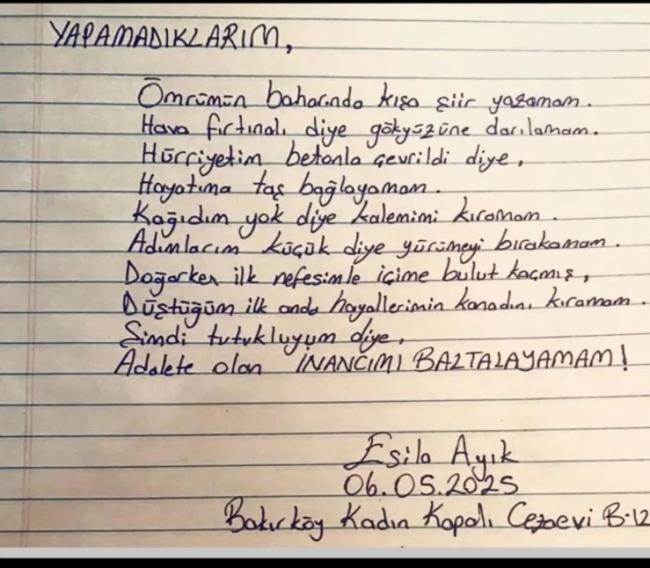 YAPAMADIKLARIM,
Ömrümün baharında kısa şiir yazamam.
Hava fırtınalı diye gökyüzüne darılamam.
Hürriyetim betonla çevrildi diye,
Hayatıma taş bağlayamam.
Kağıdım yok diye kalemimi kıramam.
Adımlarım küçük diye yürümeyi bırakamam.
Doğarken ilk nefesimle içime bulut kaçmış,
Düştüğüm ilk anda hayallerimin kanadını kıramam.
Şimdi tutukluyum diye,
Adalete olan İNANCIMI BALTALAYAMAM!
Esila Ayık
06.05.2025
Bakırköy Kadın Kapalı Cezaevi B-12